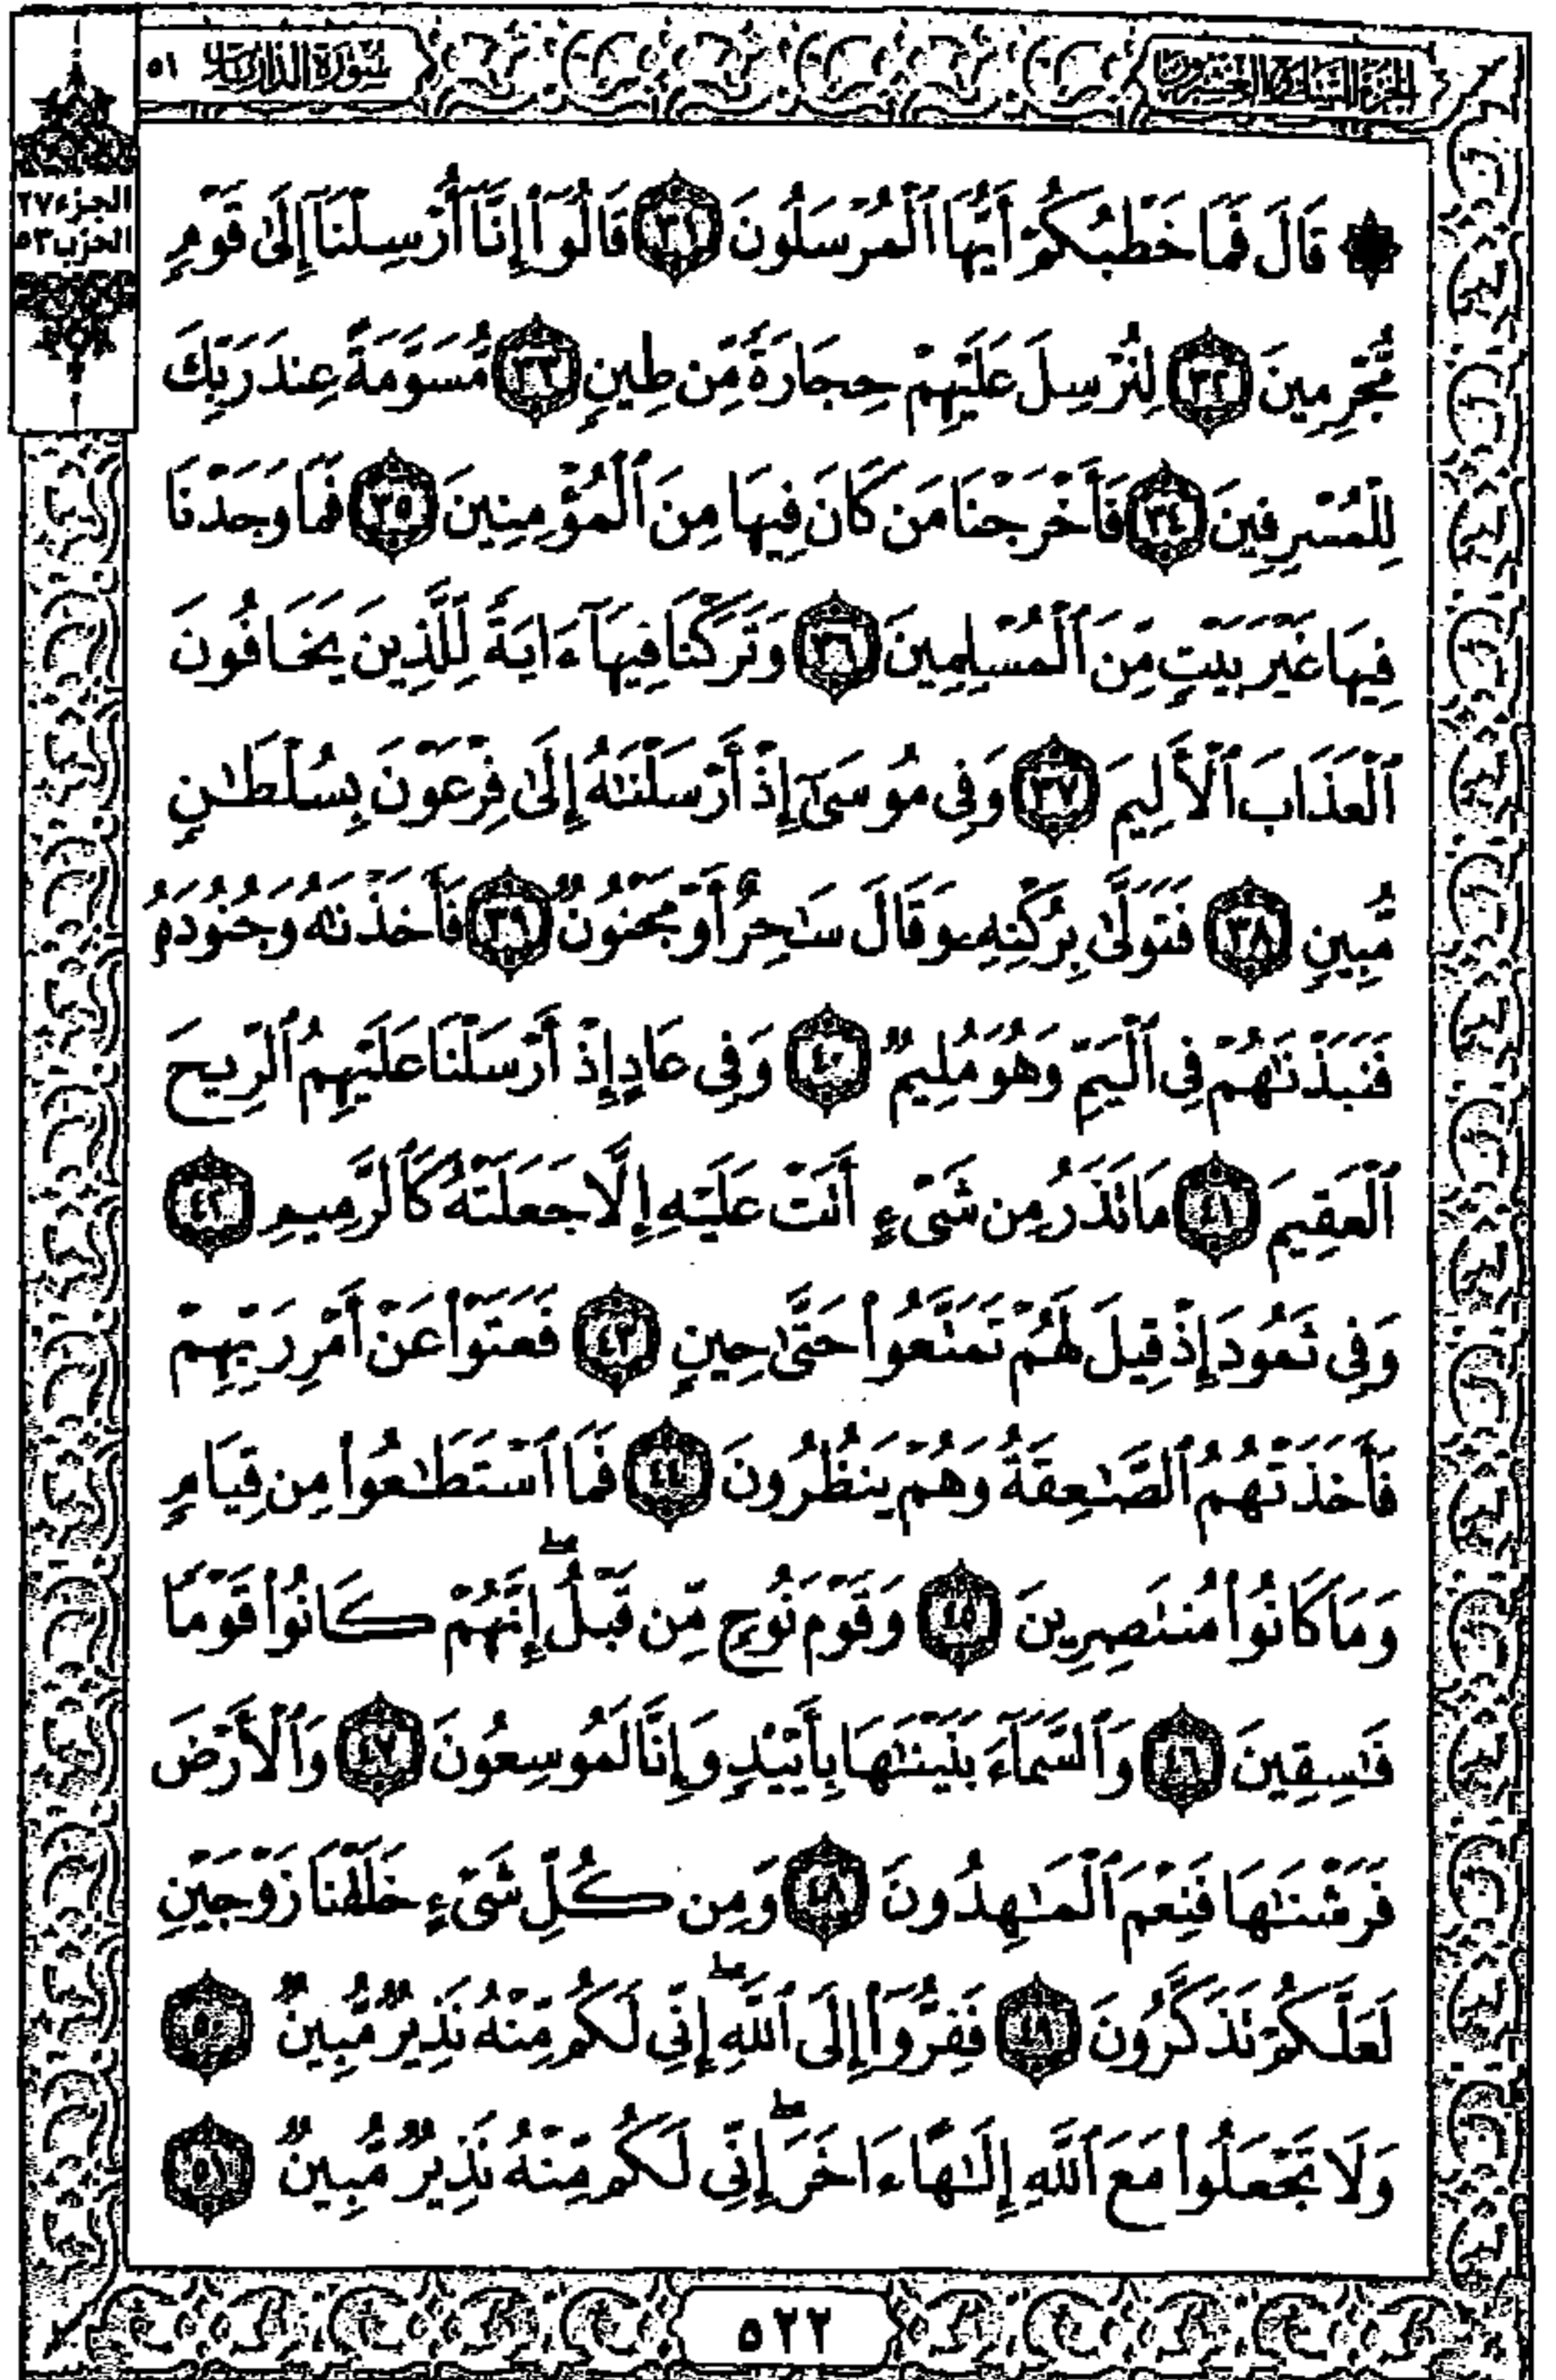 الجزء السابع والعشرون
سورة الذاريات ٥١
الجزء ٢٧
الحزب ٥٣
۞ قَالَ فَمَا خَطْبُكُمْ أَيُّهَا ٱلْمُرْسَلُونَ ٣١ قَالُوٓا۟ إِنَّآ أُرْسِلْنَآ إِلَىٰ قَوْمٍ
مُّجْرِمِينَ ٣٢ لِنُرْسِلَ عَلَيْهِمْ حِجَارَةً مِّن طِينٍ ٣٣ مُّسَوَّمَةً عِندَ رَبِّكَ
لِلْمُسْرِفِينَ ٣٤ فَأَخْرَجْنَا مَن كَانَ فِيهَا مِنَ ٱلْمُؤْمِنِينَ ٣٥ فَمَا وَجَدْنَا
فِيهَا غَيْرَ بَيْتٍ مِّنَ ٱلْمُسْلِمِينَ ٣٦ وَتَرَكْنَا فِيهَآ ءَايَةً لِّلَّذِينَ يَخَافُونَ
ٱلْعَذَابَ ٱلْأَلِيمَ ٣٧ وَفِى مُوسَىٰٓ إِذْ أَرْسَلْنَـٰهُ إِلَىٰ فِرْعَوْنَ بِسُلْطَـٰنٍ
مُّبِينٍ ٣٨ فَتَوَلَّىٰ بِرُكْنِهِۦ وَقَالَ سَـٰحِرٌ أَوْ مَجْنُونٌ ٣٩ فَأَخَذْنَـٰهُ وَجُنُودَهُۥ
فَنَبَذْنَـٰهُمْ فِى ٱلْيَمِّ وَهُوَ مُلِيمٌ ٤٠ وَفِى عَادٍ إِذْ أَرْسَلْنَا عَلَيْهِمُ ٱلرِّيحَ
ٱلْعَقِيمَ ٤١ مَا تَذَرُ مِن شَىْءٍ أَتَتْ عَلَيْهِ إِلَّا جَعَلَتْهُ كَٱلرَّمِيمِ ٤٢
وَفِى ثَمُودَ إِذْ قِيلَ لَهُمْ تَمَتَّعُوا۟ حَتَّىٰ حِينٍ ٤٣ فَعَتَوْا۟ عَنْ أَمْرِ رَبِّهِمْ
فَأَخَذَتْهُمُ ٱلصَّـٰعِقَةُ وَهُمْ يَنظُرُونَ ٤٤ فَمَا ٱسْتَطَـٰعُوا۟ مِن قِيَامٍ
وَمَا كَانُوا۟ مُنتَصِرِينَ ٤٥ وَقَوْمَ نُوحٍ مِّن قَبْلُ ۖ إِنَّهُمْ كَانُوا۟ قَوْمًا
فَـٰسِقِينَ ٤٦ وَٱلسَّمَآءَ بَنَيْنَـٰهَا بِأَيْي۟دٍ وَإِنَّا لَمُوسِعُونَ ٤٧ وَٱلْأَرْضَ
فَرَشْنَـٰهَا فَنِعْمَ ٱلْمَـٰهِدُونَ ٤٨ وَمِن كُلِّ شَىْءٍ خَلَقْنَا زَوْجَيْنِ
لَعَلَّكُمْ تَذَكَّرُونَ ٤٩ فَفِرُّوٓا۟ إِلَى ٱللَّهِ ۖ إِنِّى لَكُم مِّنْهُ نَذِيرٌ مُّبِينٌ ٥٠
وَلَا تَجْعَلُوا۟ مَعَ ٱللَّهِ إِلَـٰهًا ءَاخَرَ ۖ إِنِّى لَكُم مِّنْهُ نَذِيرٌ مُّبِينٌ ٥١
٥٢٢